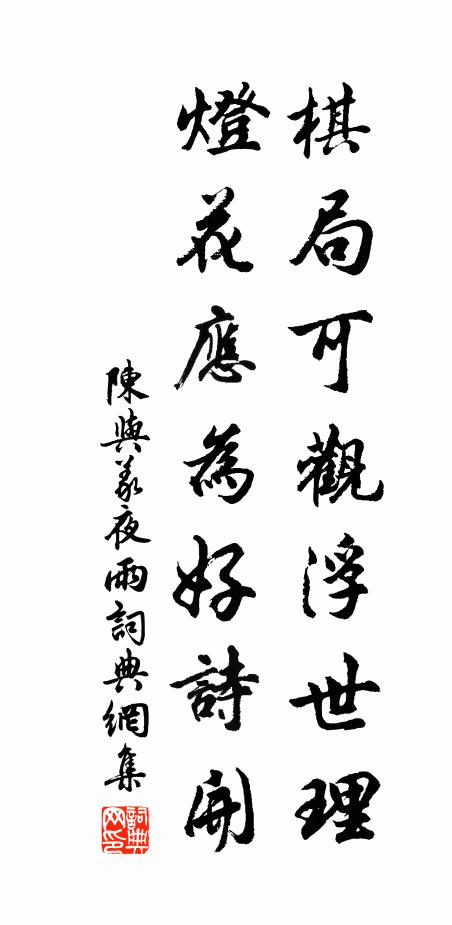 棋局可觀浮世理
燈花應為好詩開
陳與義夜雨詞典網集
詞典网印